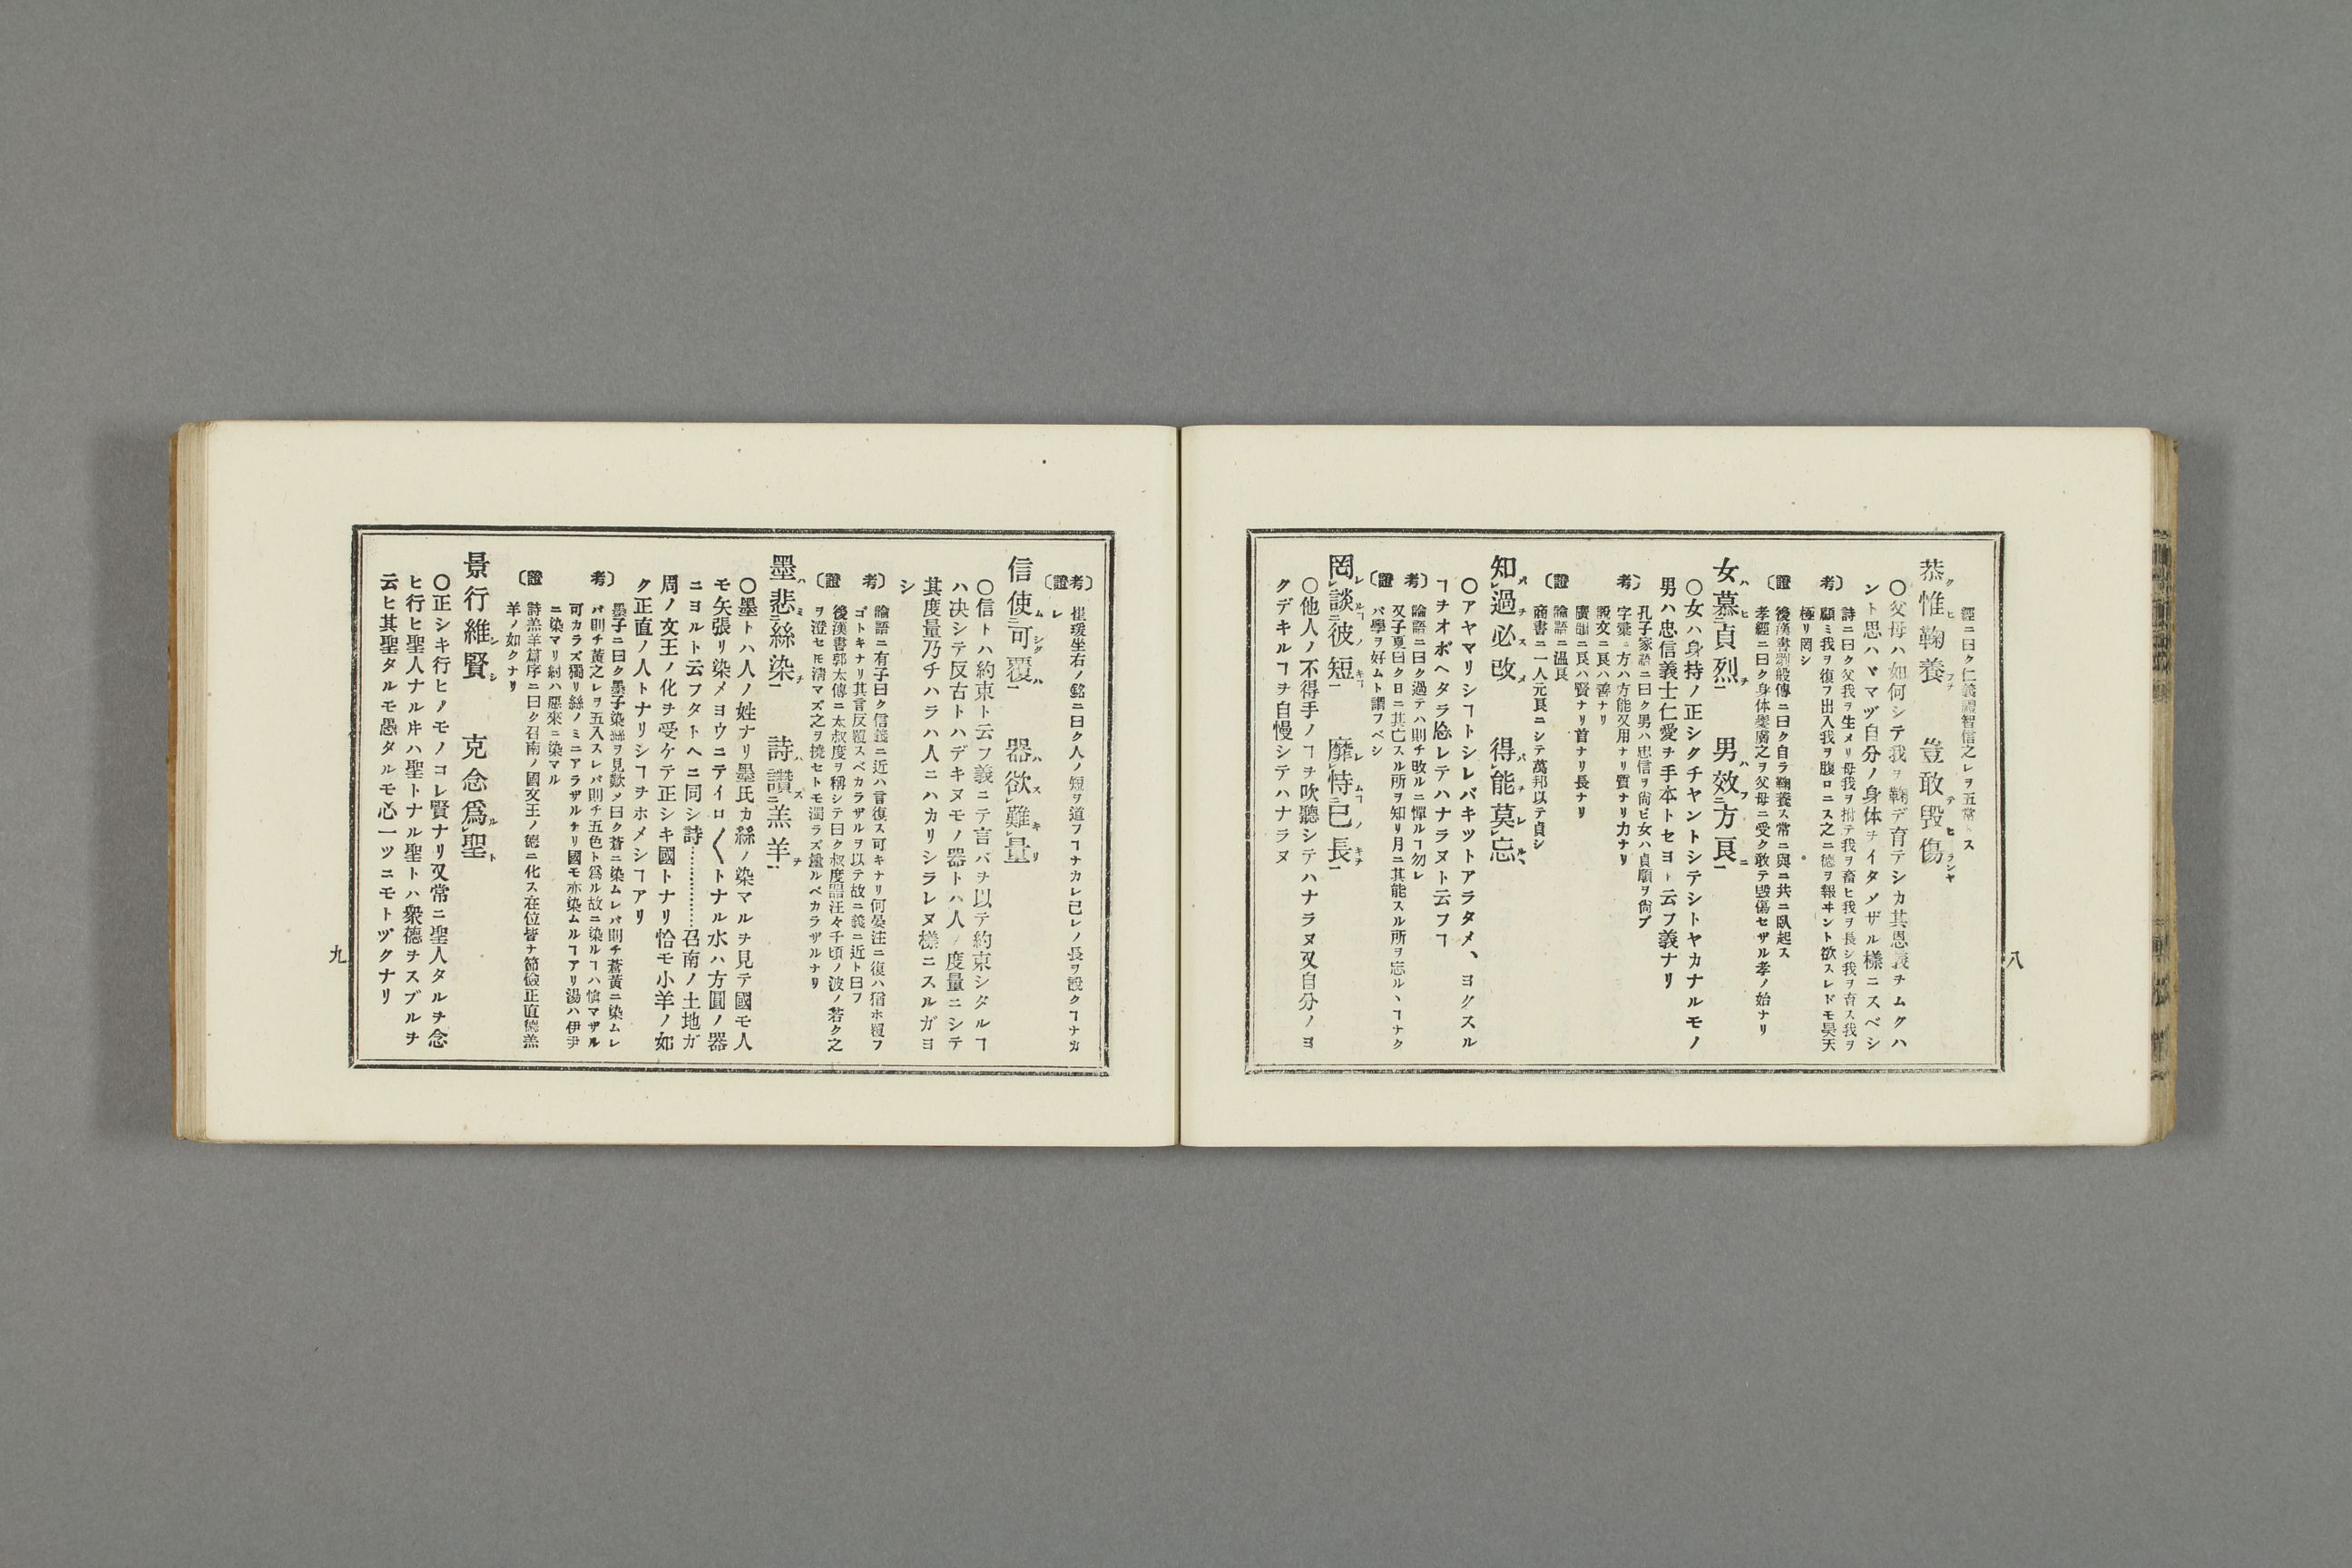 經ニ曰ク仁義禮智信之レヲ五常トス
恭惟鞠養 豈敢毀傷
〇父母ハ如何シテ我ヲ鞠デ育テシカ其恩義ヲムクハ
ント思ハヾマヅ自分ノ身体ヲイタメザル樣ニスベシ
〔考 詩ニ曰ク父我ヲ生メリ母我ヲ拊テ我ヲ畜ヒ我ヲ長シ我ヲ育ス我ヲ
顧ミ我ヲ復フ出入我ヲ腹ロニス之ニ德ヲ報ヰント欲スレドモ昊天
極リ罔シ
證〕 後漢書劉般傳ニ曰ク自ラ鞠養ス常ニ與ニ共ニ臥起ス
孝經ニ曰ク身体髮膚之ヲ父母ニ受ク敢テ毀傷セザル孝ノ始ナリ
女慕貞烈 男效方良
〇女ハ身持ノ正シクチヤントシテシトヤカナルモノ
男ハ忠信義士仁愛ヲ手本トセヨト云フ義ナリ
〔考 孔子家語ニ曰ク男ハ忠信ヲ尙ビ女ハ貞順ヲ尙ブ
字彙ニ方ハ方能又用ナリ質ナリ力ナリ
說文ニ良ハ善ナリ
廣韻ニ良ハ賢ナリ首ナリ長ナリ
證〕 論語ニ溫良
商書ニ一人元良ニシテ萬邦以テ貞シ
知過必改 得能莫忘
〇アヤマリシヿトシレバキツトアラタメ、ヨクスル
ヿヲオボヘタラ忘レテハナラヌト云フヿ
〔考 論語ニ曰ク過テハ則チ改ルニ憚ルヿ勿レ
又子夏曰ク日ニ其亡スル所ヲ知リ月ニ其能スル所ヲ忘ルヽヿナク
證〕 バ學ヲ好ムト謂フベシ
罔談彼短 靡恃己長
〇他人ノ不得手ノヿヲ吹聽シテハナラヌ又自分ノヨ
クデキルヿヲ自慢シテハナラヌ
八
〔考證〕 崔瑗坐右ノ銘ニ曰ク人ノ短ヲ道フヿナカレ己レノ長ヲ說クヿナカ
レ
信使可覆 器欲難量
〇信トハ約束ト云フ義ニテ言バヲ以テ約束シタルヿ
ハ決シテ反古トハデキヌモノ器トハ人ノ度量ニシテ
其度量乃チハラハ人ニハカリシラレヌ樣ニスルガヨ
シ
〔考 論語ニ有子曰ク信義ニ近ハ言復ス可キナリ何晏注ニ復ハ猶ホ覆フ
ゴトキナリ其言反覆スベカラザルヲ以テ故ニ義ニ近ト曰フ
證〕 後漢書郭太傳ニ太叔度ヲ稱シテ曰ク叔度器汪々千頃ノ波ノ若ク之
ヲ澄セモ淸マズ之ヲ撓セトモ濁ラズ量ルベカラザルナリ
墨悲絲染 詩讚羔羊
〇墨トハ人ノ姓ナリ墨氏カ絲ノ染マルヲ見テ國モ人
モ矢張リ染メヨウニテイロ〱トナル水ハ方圓ノ器
ニヨルト云フタトヘニ同シ詩…………召南ノ土地ガ
周ノ文王ノ化ヲ受ケテ正シキ國トナリ恰モ小羊ノ如
ク正直ノ人トナリシヿヲホメシヿアリ
〔考 墨子ニ曰ク墨子染絲ヲ見歎メ曰ク蒼ニ染ムレバ則チ蒼黃ニ染ムレ
バ則チ黃之レヲ五入スレバ則チ五色ト爲ル故ニ染ルヿハ愼マザル
可カラズ獨リ絲ノミニアラザルナリ國モ亦染ムルヿアリ湯ハ伊尹
ニ染マリ紂ハ惡來ニ染マル
證〕 詩羔羊篇序ニ曰ク召南ノ國文王ノ德ニ化ス在位皆ナ節儉正直德羔
羊ノ如クナリ
景行維賢 克念爲聖
〇正シキ行ヒノモノコレ賢ナリ又常ニ聖人タルヲ念
ヒ行ヒ聖人ナル片ハ聖トナル聖トハ衆德ヲスブルヲ
云ヒ其聖タルモ愚タルモ心一ツニモトヅクナリ
九